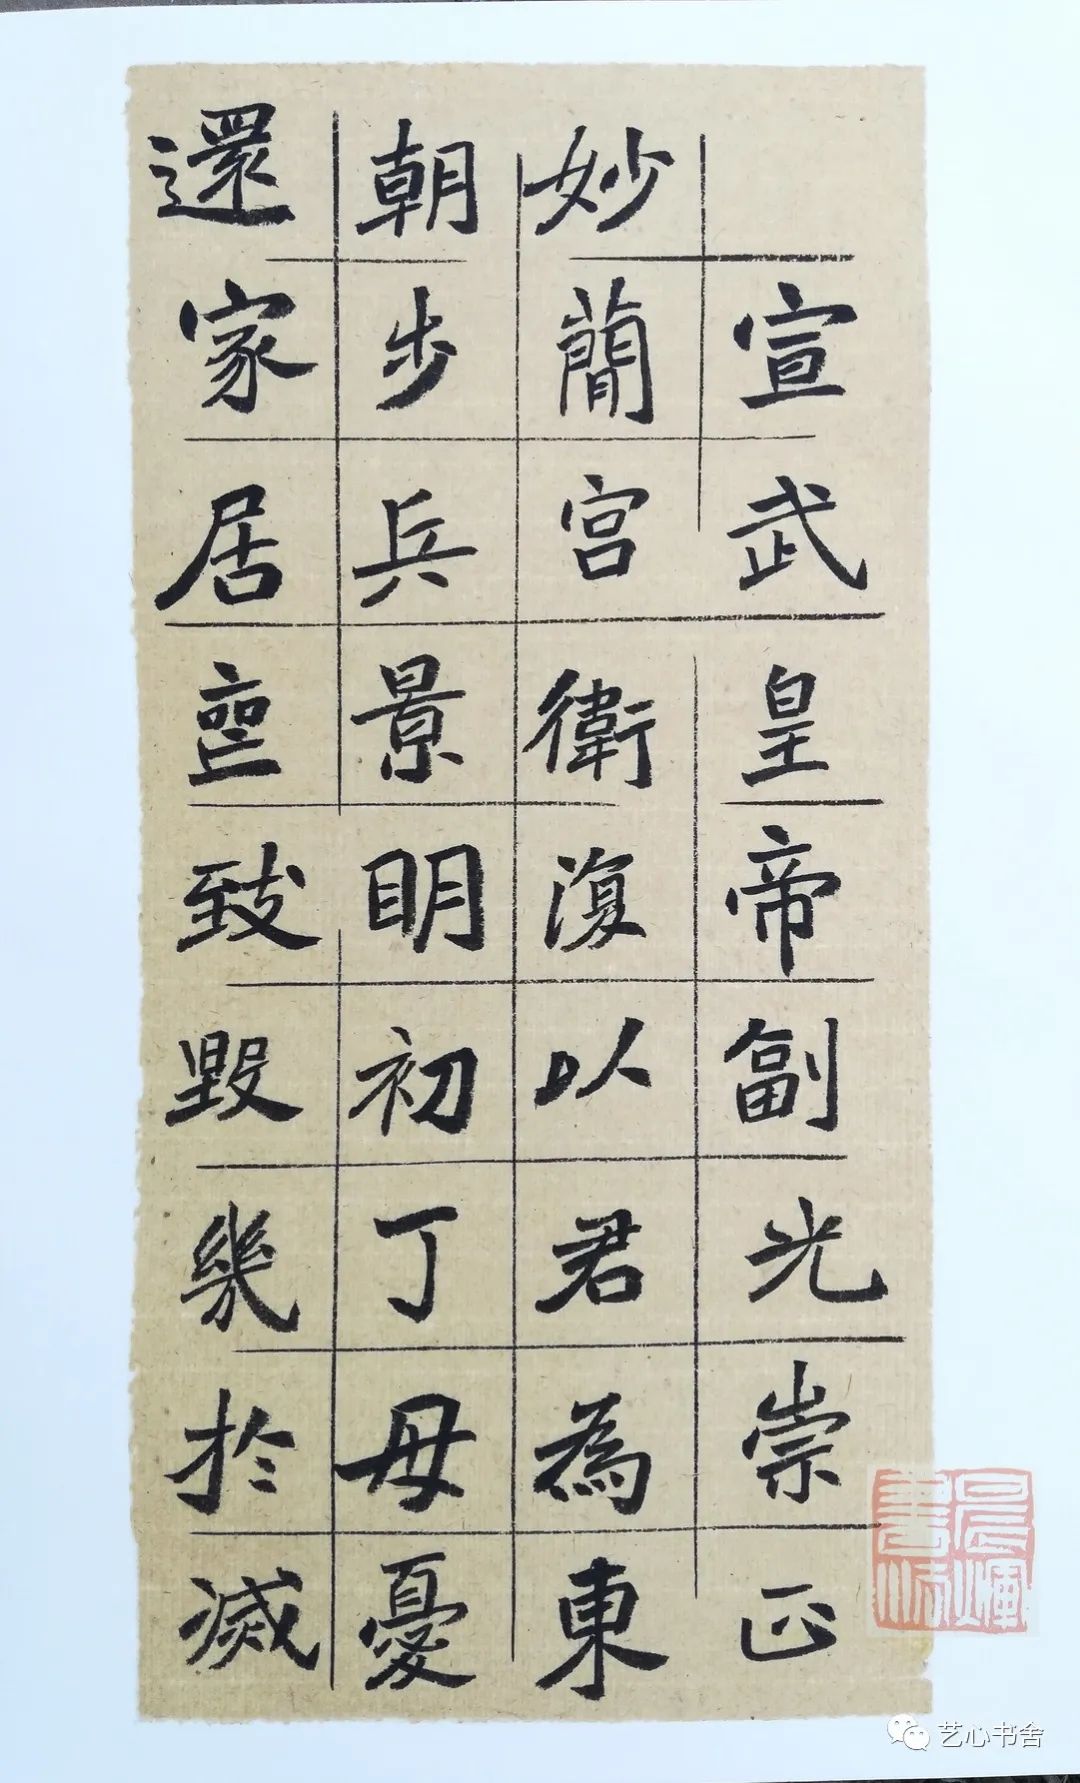 宣武皇帝副光崇正
妙簡宮衛復以君為東
朝步兵景明初丁母憂
還家居喪致毀幾於滅
艺心书舍